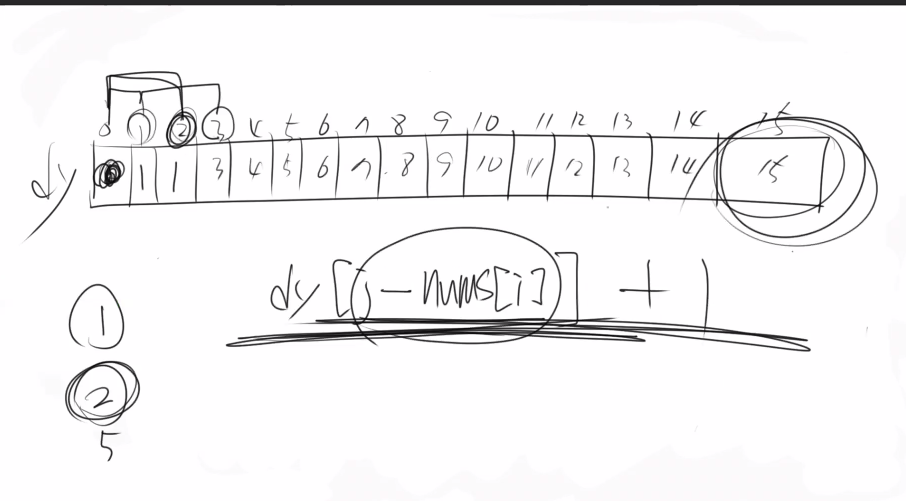 0 1 2 3 4 5 6 7 8 9 10 11 12 13 14 15
dy 1 1 3 4 5 6 7 8 9 10 11 12 13 14 15
dy[j-nums[i]] + 1
1
2
5